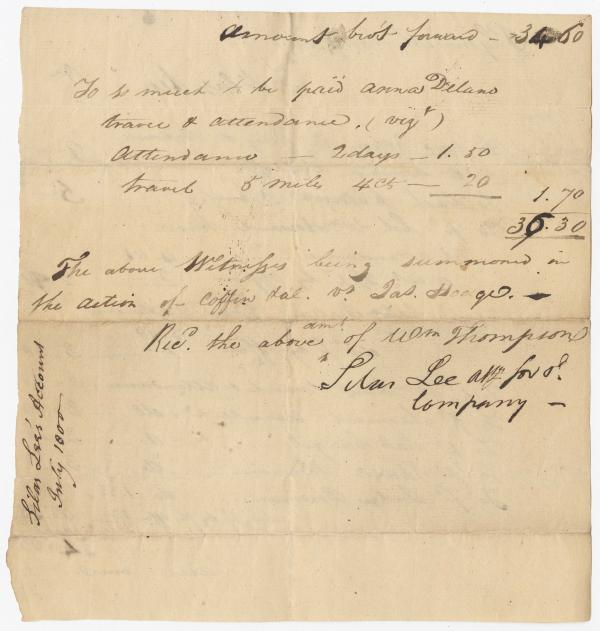 Amount bro't forward - 34.60
To so much to be paid Anna Delano
travel & attendance. (vizt)
Attendance - 2 days - 1.50
travel 5 miles 4 Cts - 20
1.70
36.30
The above Witnesses being summoned in
the action of Coffin & al. vs Jas. Hodge. -
Recd. the above amt. of Wm Thompson
Silas Lee atty for sd.
Company -
Silas Lee's Account
July 1800